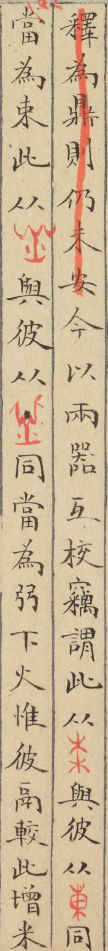 釋為鼎則仍未安今以兩器互校竊謂此从與彼从同
當為束此从與彼从同當為弜下火惟彼鬲較此增米